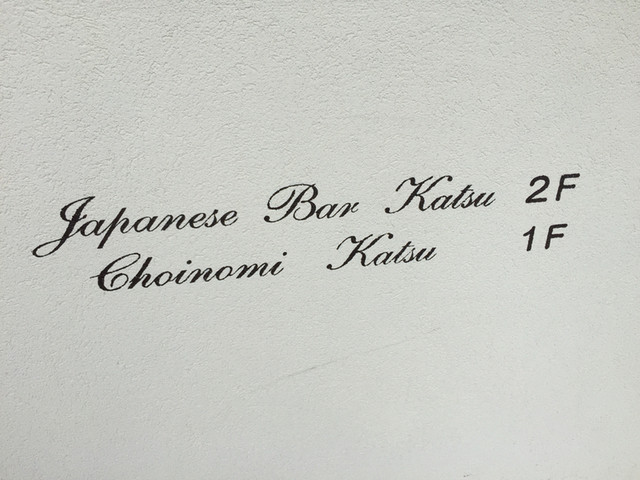 Japanese Bar Katsu 2F
Choinomi Katsu 1F